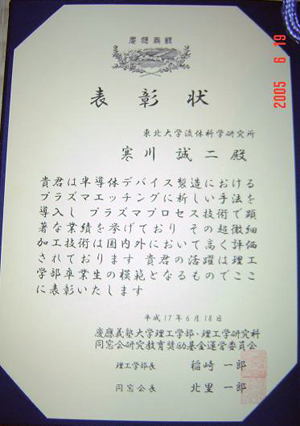 慶應義塾
表彰状
東北大学流体科学研究所
寒川 誠二 殿
貴君は半導体デバイス製造における
プラズマエッチングに新しい手法を
導入し プラズマプロセス技術で顕
著な業績を挙げており その超微細
加工技術は国内外において高く評価
されております 貴君の活躍は理工
学部卒業生の模範となるものでここ
に表彰いたします
平成17年6月18日
慶應義塾大学理工学部・理工学研究科
同窓会研究教育奨励基金運営委員会
理工学部長 稲崎 一郎
同窓会長 北里 一郎
2005 6 19